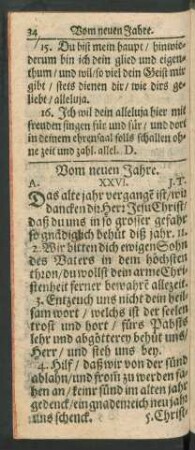 34 Vom neuen Jahre.
15. Du bist mein haupt / hinwie-
derum bin ich dein glied und eigen-
thum / und wil / so viel dein Geist mir
gibt / stets dienen dir / wie dirs ge-
liebt / alleluja.
16. Ich wil dein alleluja hier mit
freuden singen für und für / und dort
in deinem ehrensaal solls schallen oh-
ne zeit und zahl. allel. D.
Vom neuen Jahre.
A. XXVI. J. T.
Das alte jahr vergangẽ ist / wir
dancken dir Herr Jesu Christ /
daß du uns in so grosser gefahr
so gnädiglich behüt diß jahr. ::
2. Wir bitten dich ewigen Sohn
des Vaters in dem höchsten
thron / du wollst dein arme Chri-
stenheit ferner bewahrẽ allezeit.
3. Entzeuch uns nicht dein heil-
sam wort / welchs ist der seelen
trost und hort / fürs Pabsts
lehr und abgötterey behüt uns
Herr / und steh uns bey.
4. Hilf / daß wir von der sünd
ablahn / und from zu werden fa-
hen an / keinr sünd im alten jahr
gedenck / ein gnadenreich neu jahr
uns schenck. 5. Christ-